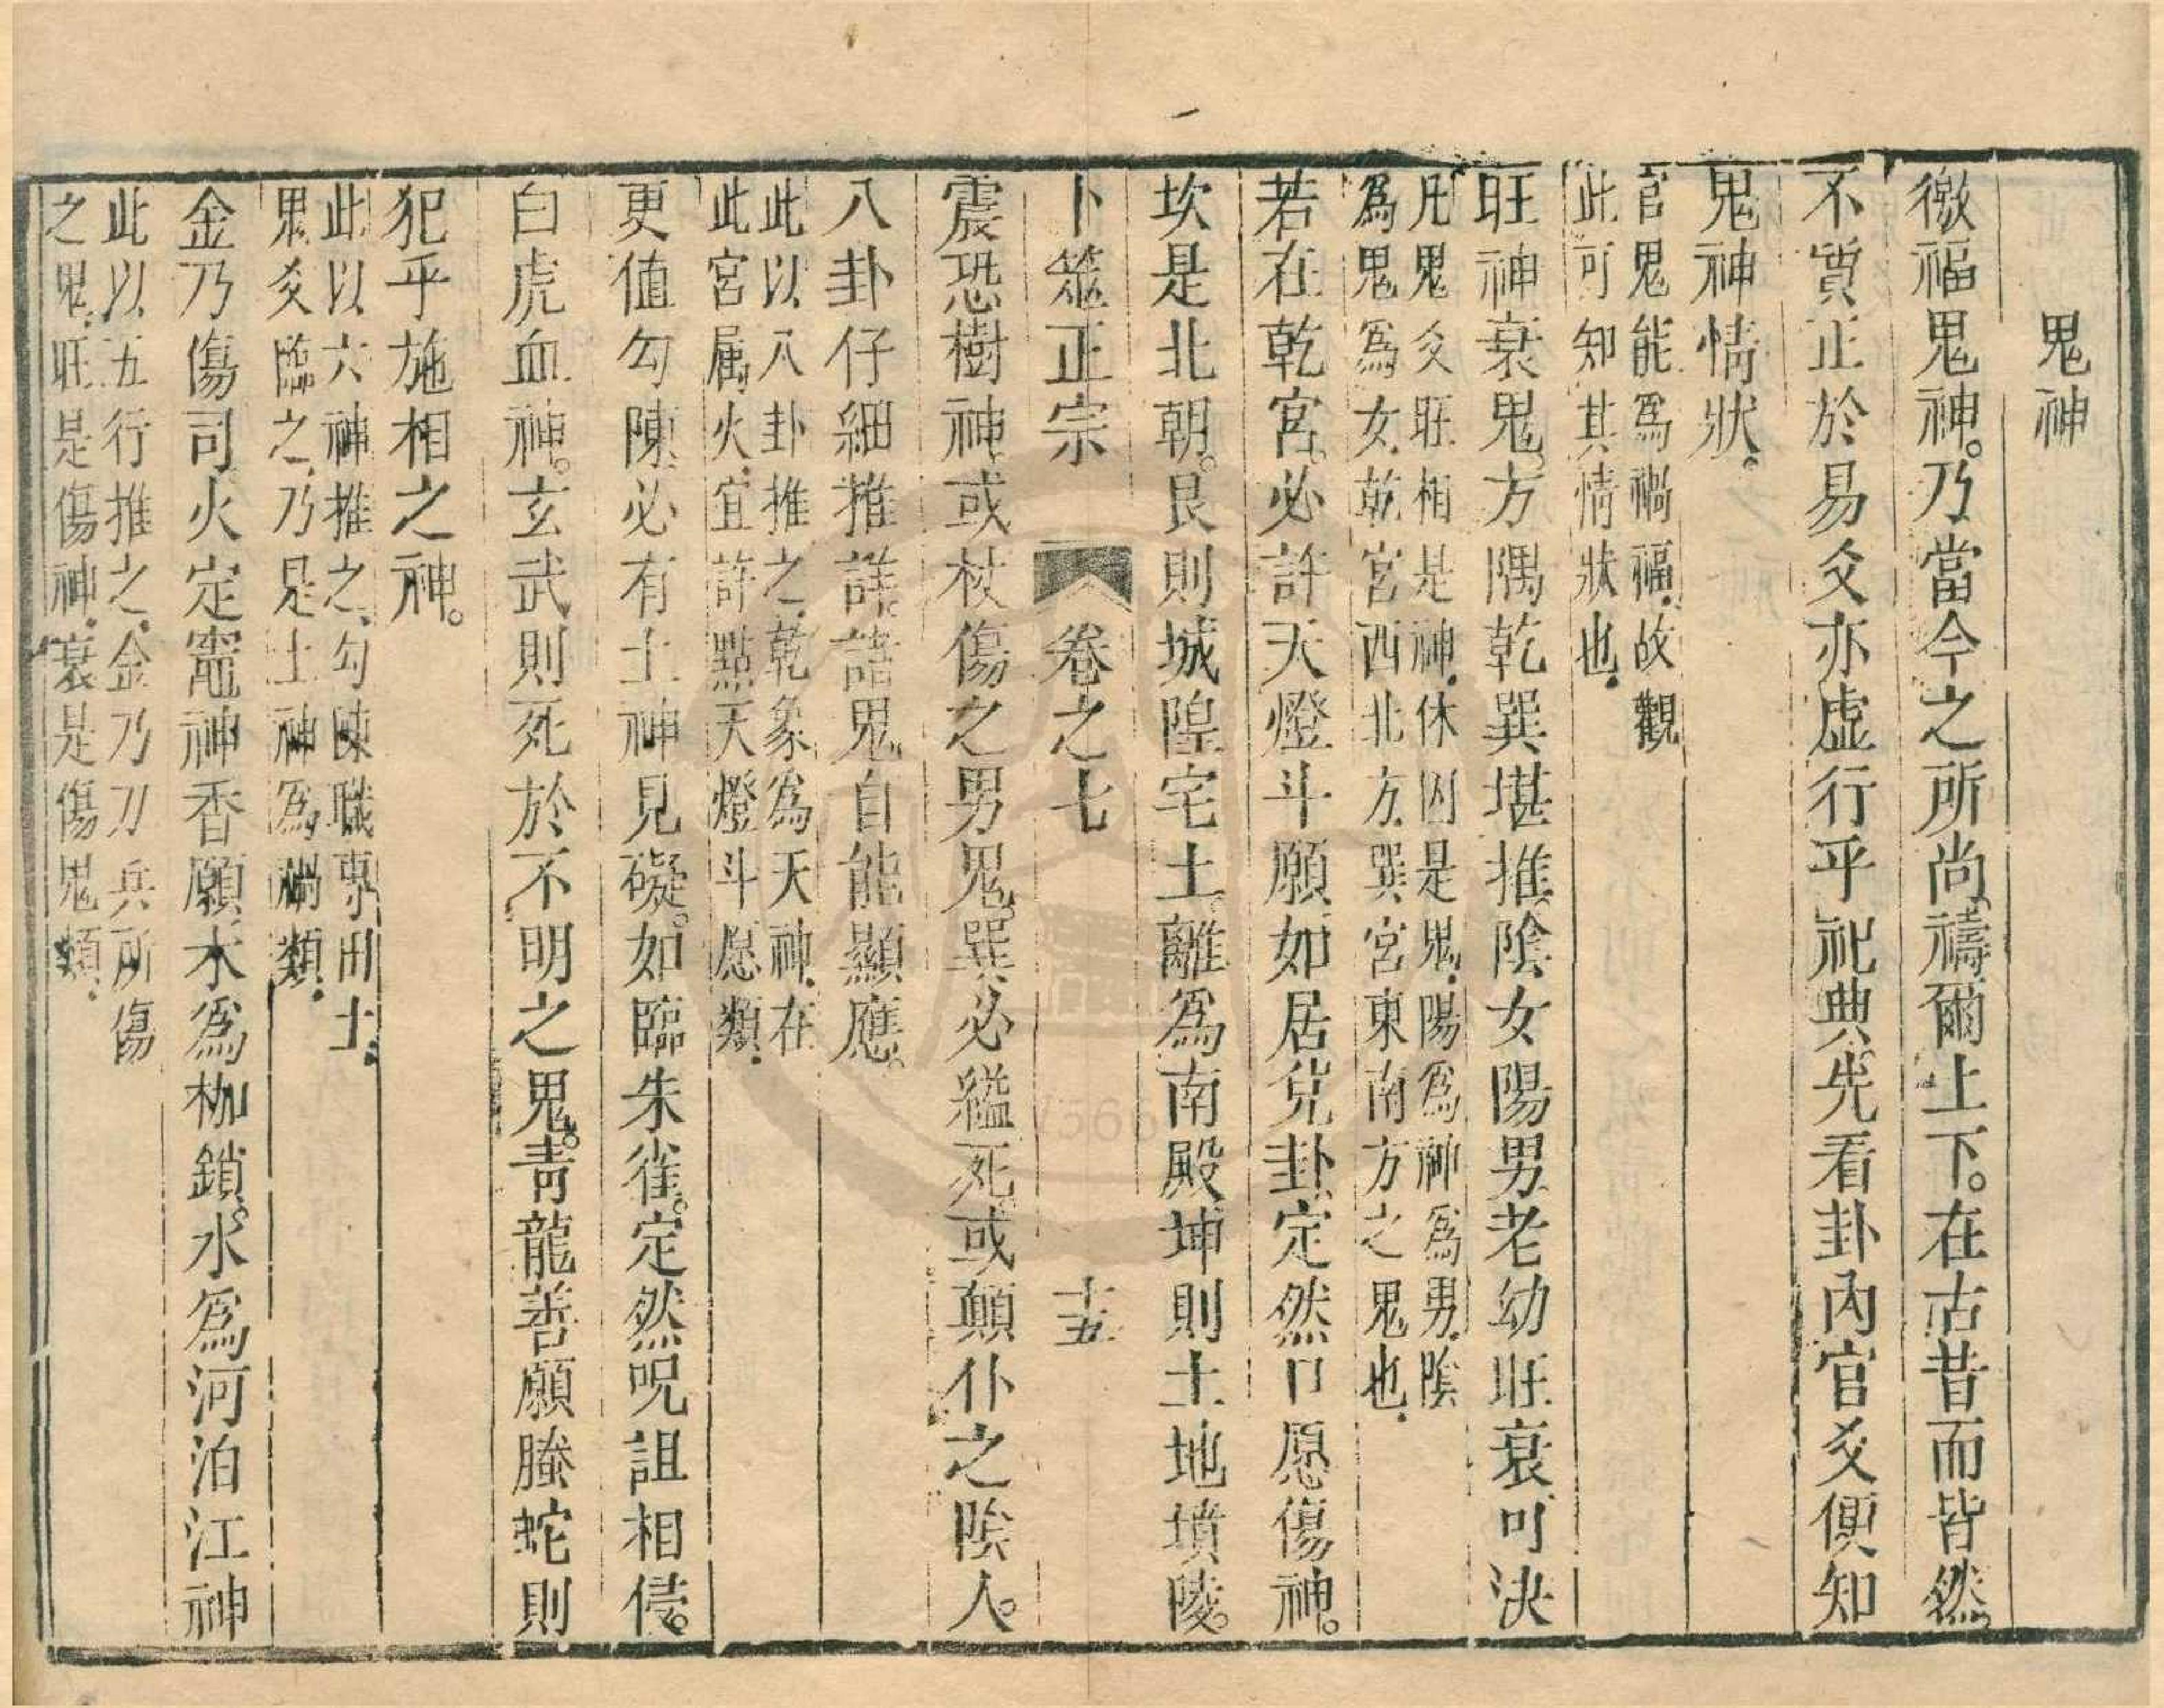 鬼神
徼福鬼神。乃當今之所尚。禱爾上下。在古昔而皆然。
不質正於易爻亦虛行乎祀典。先看卦內官爻便知
鬼神情狀。
官鬼能爲禍福。故觀
此可知其情狀也。
旺神衰鬼。方隅乾巽堪推。陰女陽男老幼旺衰可決
凡鬼爻旺相是神。休囚是鬼。陽爲神爲男。陰
爲鬼爲女。乾宮西北方。巽宮東南方之鬼也。
若在乾宮。必許天燈斗願。如居兌卦。定然口愿傷神。
坎是北朝。艮則城隍宅土。離爲南殿。坤則土地墳陵。
卜筮正宗 卷之七 十五
震恐樹神。或杖傷之男鬼。巽必縊死。或顛仆之陰人。
八卦仔細推詳。諸鬼自能顯應。
此以八卦推之。乾象爲天神。在
此宮屬火。宜許點天燈斗愿類。
更值勾陳。必有土神見礙。如臨朱雀。定然呪詛相侵。
白虎血神。玄武則死於不明之鬼。青龍善願。螣蛇則
犯乎施相之神。
此以六神推之。勾陳職專田土。
鬼爻臨之。乃是土神爲禍類。
金乃傷司。火定竈神香願。木爲枷鎖。水爲河泊江神
此以五行推之。金乃刀兵所傷
之鬼。旺是傷神。衰是傷鬼類。
1566